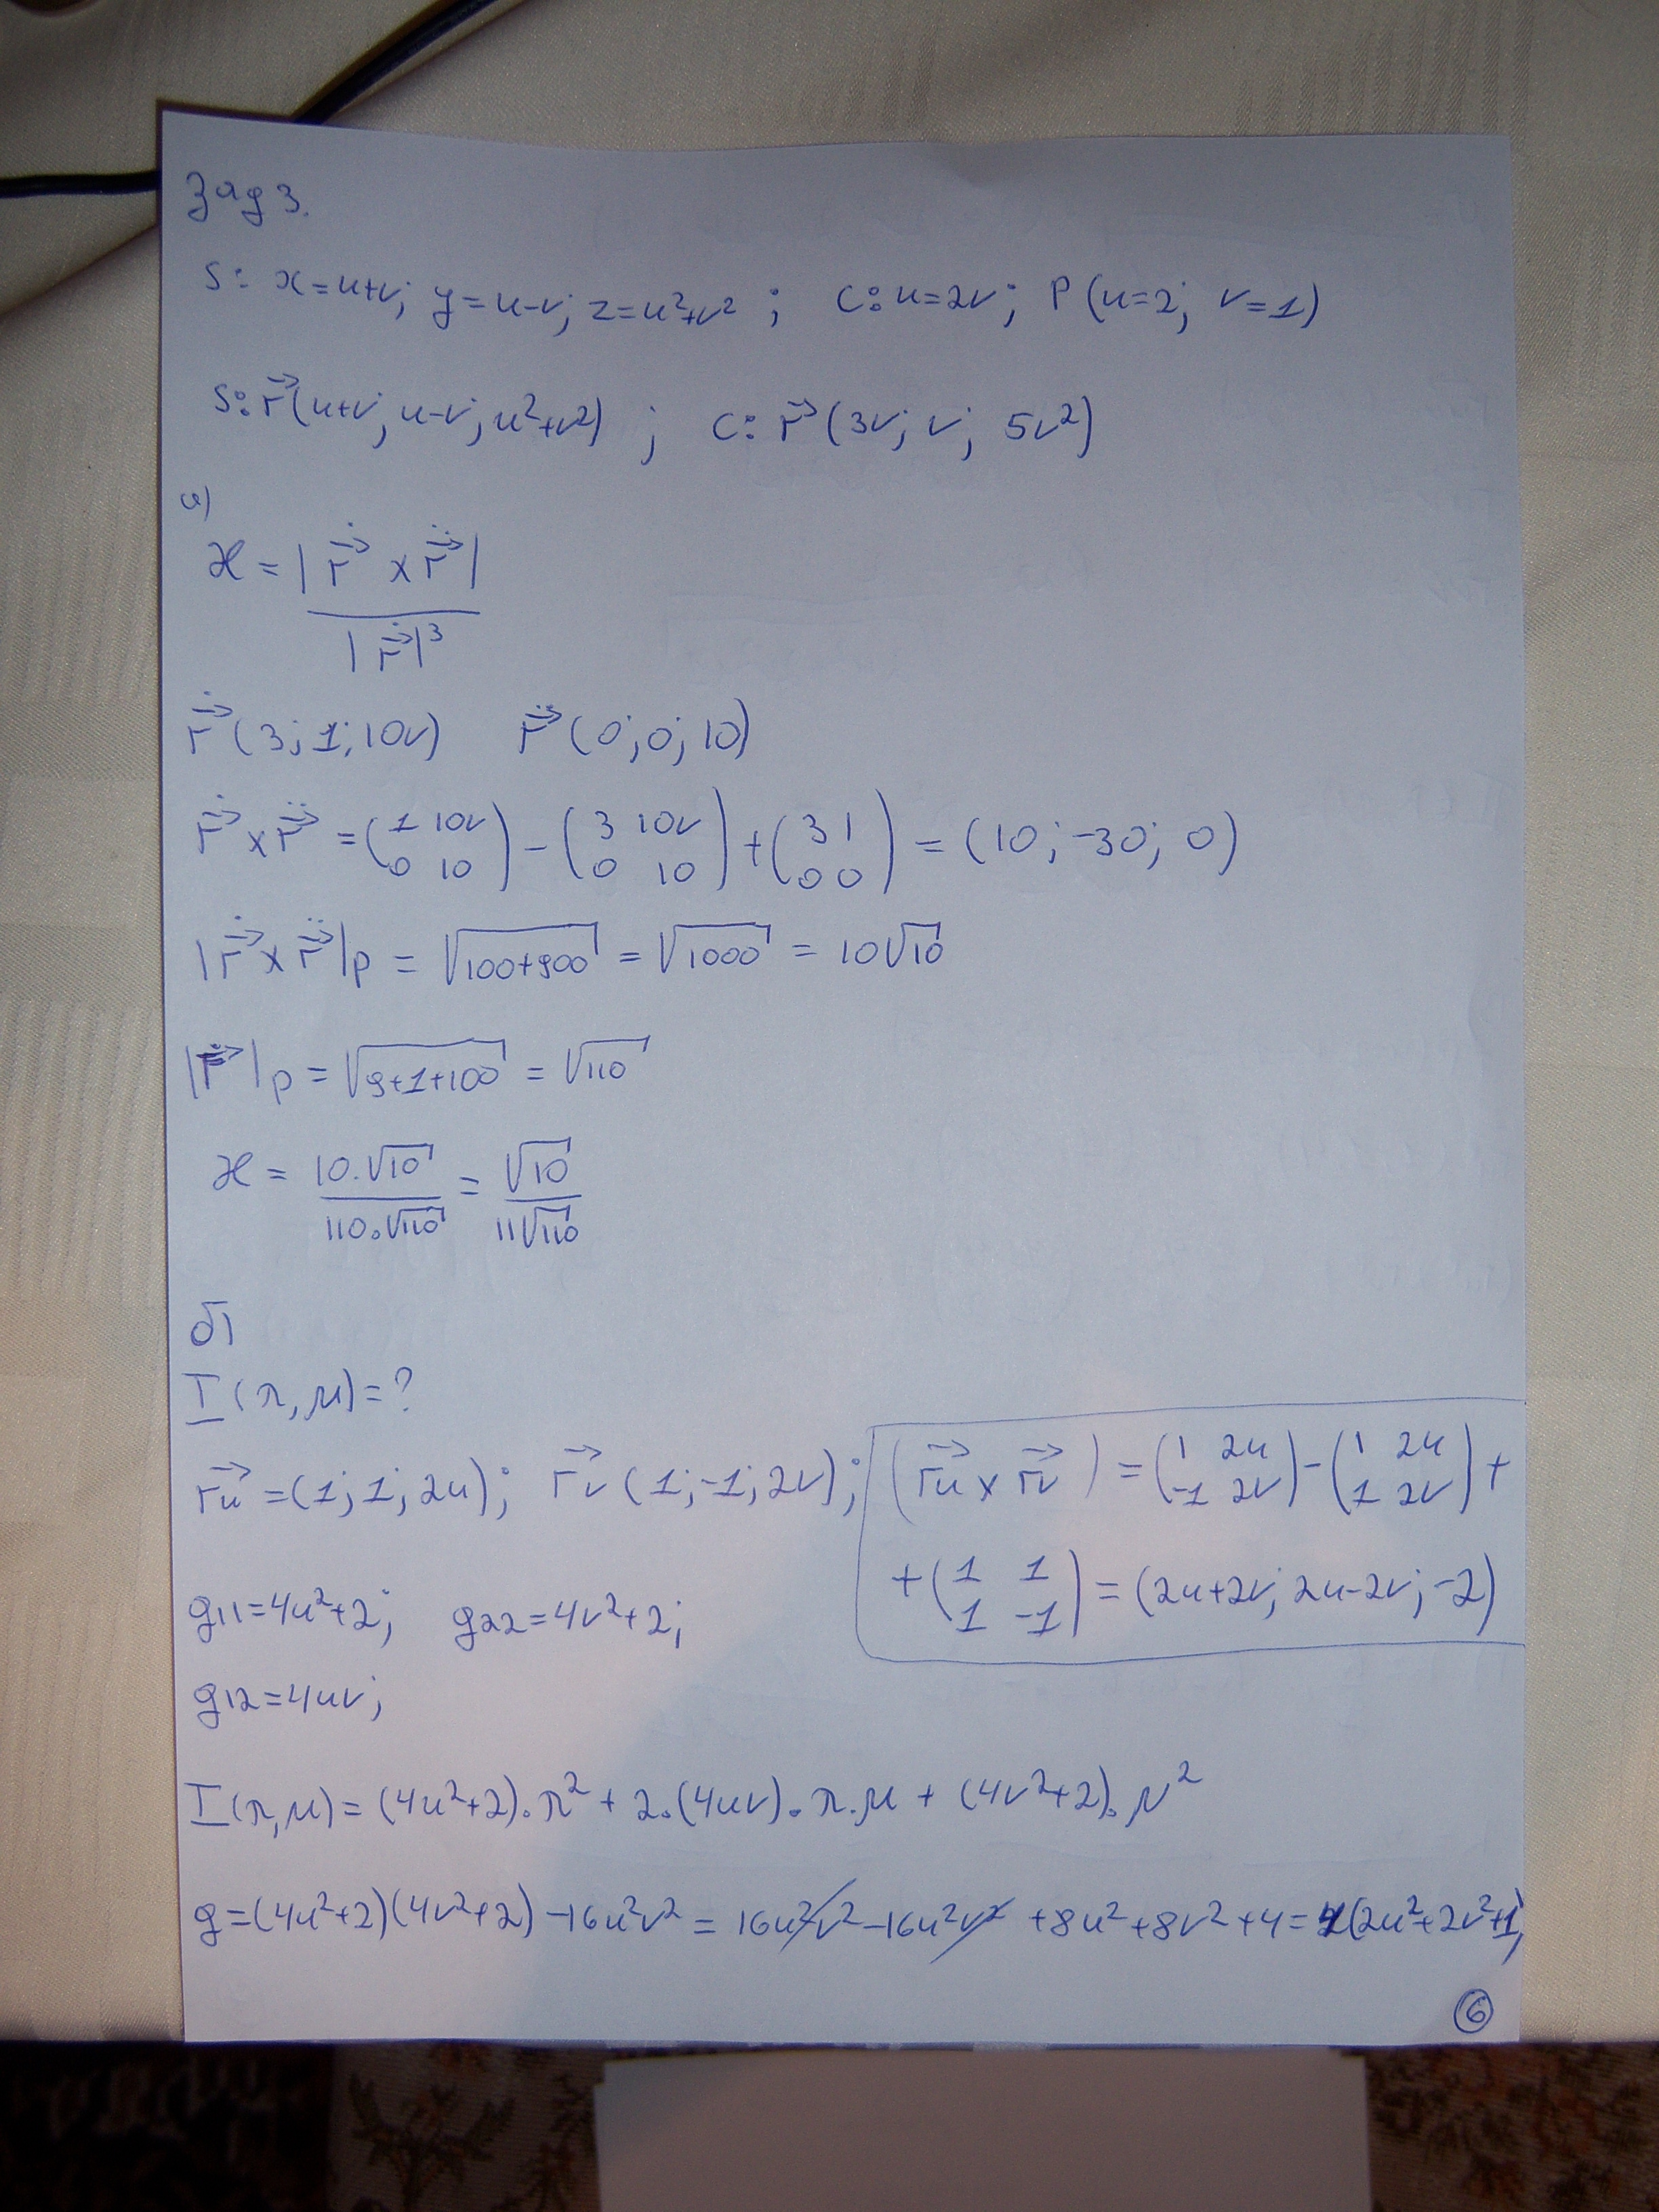 Зад 3.
S: x=u+v; y=u-v; z=u²+v² ; C: u=2v; P(u=2; v=1)
S: r⃗(u+v; u-v; u²+v²) ; C: r⃗(3v; v; 5v²)
а)
ϰ = |ṙ⃗ × r̈⃗|
|ṙ⃗|³
ṙ⃗(3; 1; 10v) r̈⃗(0; 0; 10)
ṙ⃗ × r̈⃗ = (1 10v) - (3 10v) + (3 1) = (10; -30; 0)
0 10 0 10 0 0
|ṙ⃗ × r̈⃗|p = √100+900 = √1000 = 10√10
|r⃗|p = √9+1+100 = √110
ϰ = 10.√10 = √10
110.√110 11√110
б)
I(λ, μ)=?
r⃗u = (1; 1; 2u); r⃗v (1; -1; 2v); (r⃗u × r⃗v) = (1 2u) - (1 2u) +
-1 2v 1 2v
+ (1 1) = (2u+2v; 2u-2v; -2)
1 -1
g11=4u²+2; g22=4v²+2;
g12=4uv;
I(λ,μ) = (4u²+2).λ² + 2.(4uv).λ.μ + (4v²+2).μ²
g=(4u²+2)(4v²+2) -16u²v² = 16u²v² -16u²v² +8u²+8v²+4= 4(2u²+2v²+1)
6